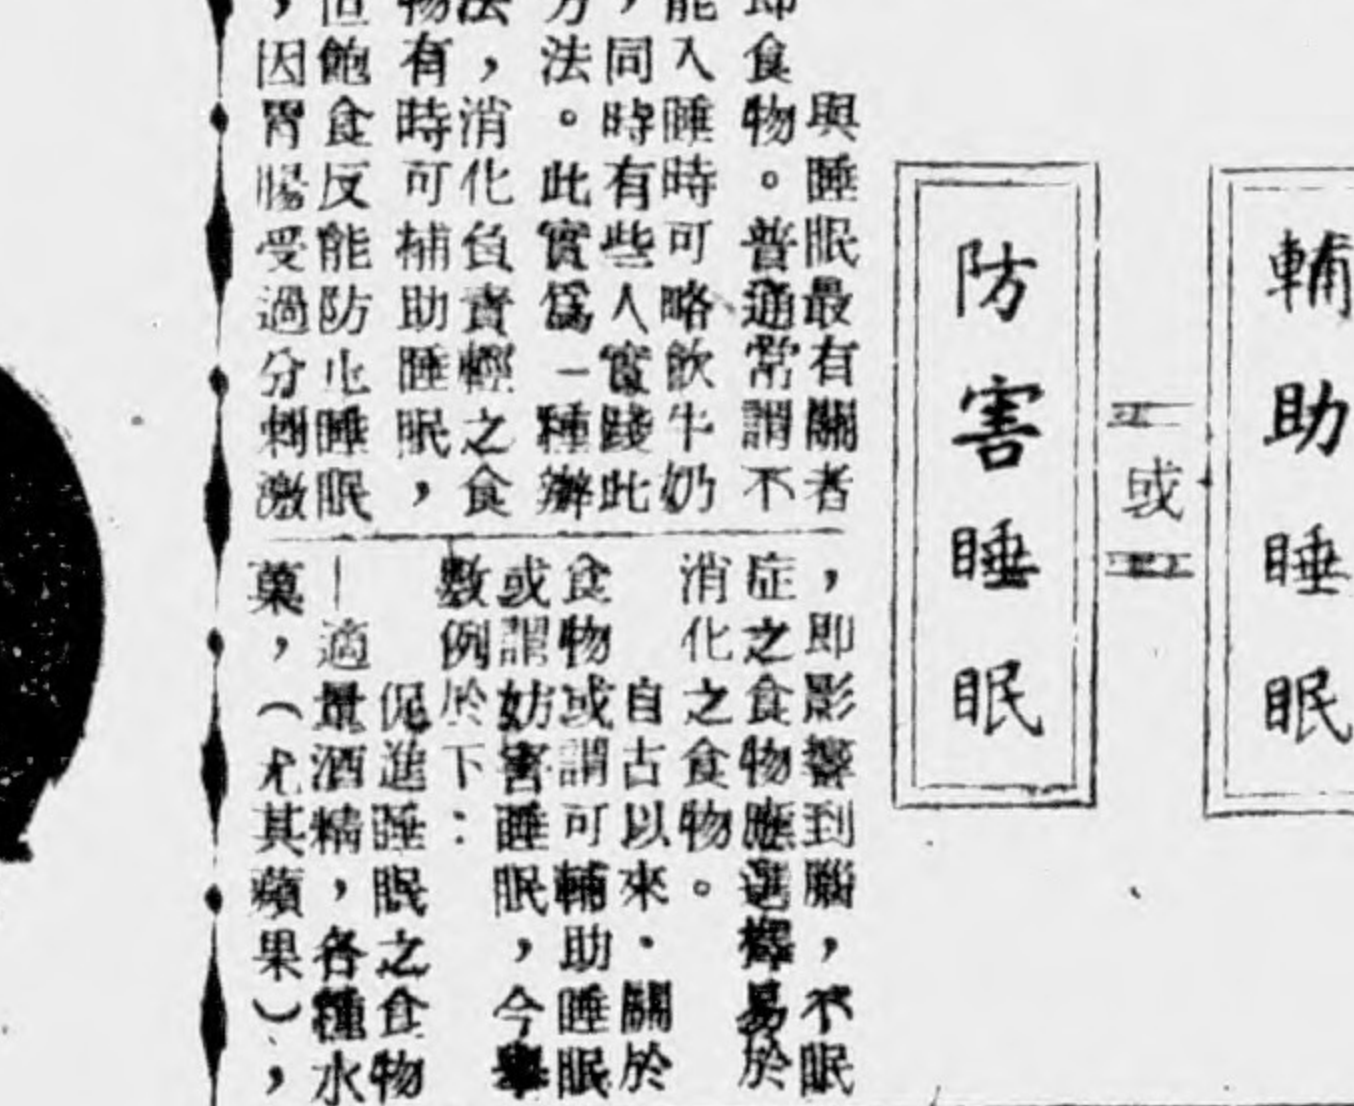 輔助睡眠
或
防害睡眠
與睡眠最有關者
即食物。普通常謂不
能入睡時可略飲牛奶
，同時有些人實踐此
方法。此實爲一種辦
法，消化負責輕之食
物有時可補助睡眠，
但飽食反能防止睡眠
，因胃腸受過分刺激
，即影響到腦，不眠
症之食物應選擇易於
消化之食物。
自古以來．關於
食物或謂可輔助睡眠
或謂妨害睡眠，今舉
數例於下：
促進睡眠之食物
—適量酒精，各種水
菓，（尤其蘋果），